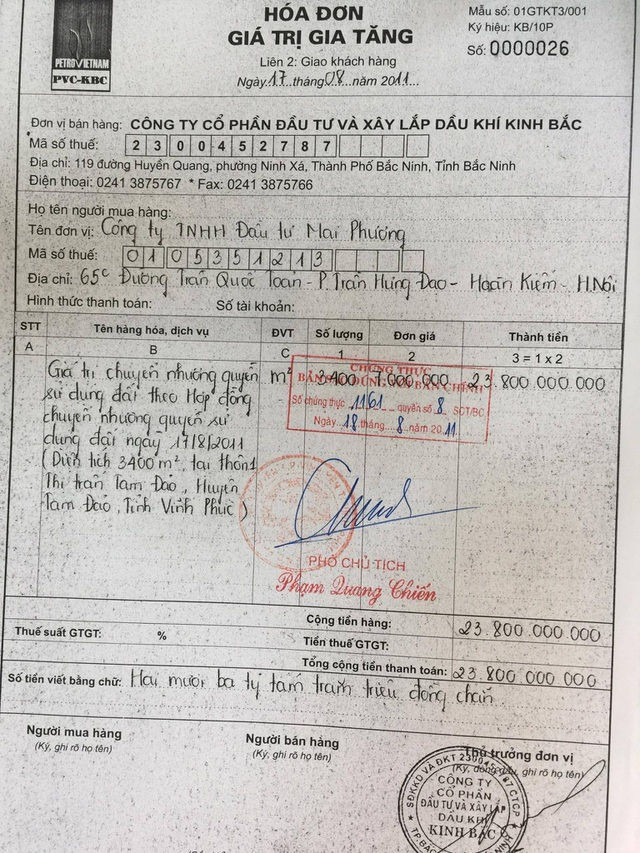 PETROVIETNAM
PVC-KBC
HÓA ĐƠN
GIÁ TRỊ GIA TĂNG
Liên 2: Giao khách hàng
Ngày 17 tháng 08 năm 2011
Mẫu số: 01GTKT3/001
Ký hiệu: KB/10P
Số: 0000026
Đơn vị bán hàng: CÔNG TY CỔ PHẦN ĐẦU TƯ VÀ XÂY LẮP DẦU KHÍ KINH BẮC
Mã số thuế: 2300452787
Địa chỉ: 119 đường Huyền Quang, phường Ninh Xá, Thành Phố Bắc Ninh, Tỉnh Bắc Ninh
Điện thoại: 0241 3875767 * Fax: 0241 3875766
Họ tên người mua hàng:
Tên đơn vị: Công ty TNHH Đầu tư Mai Phương
Mã số thuế: 0105351213
Địa chỉ: 65C Đường Trần Quốc Toản - P. Trần Hưng Đạo - Hoàn Kiếm - H.Nội
Hình thức thanh toán: Số tài khoản:
STT Tên hàng hóa, dịch vụ ĐVT Số lượng Đơn giá Thành tiền
A B C 1 2 3 = 1 x 2
Giá trị chuyển nhượng quyền m² 3400 7.000.000 23.800.000.000
sử dụng đất theo Hợp đồng
chuyển nhượng quyền sử
dụng đất ngày 17/8/2011
(Diện tích 3400 m², tại thôn 1
Thị trấn Tam Đảo, Huyện
Tam Đảo, Tỉnh Vĩnh Phúc)
CHỨNG THỰC
BẢN SAO ĐÚNG VỚI BẢN CHÍNH
Số chứng thực 1161 quyển số 8 SCT/BC
Ngày 18 tháng 8 năm 2011
PHÓ CHỦ TỊCH
Phạm Quang Chiến
Cộng tiền hàng: 23.800.000.000
Thuế suất GTGT: % Tiền thuế GTGT:
Tổng cộng tiền thanh toán: 23.800.000.000
Số tiền viết bằng chữ: Hai mươi ba tỷ tám trăm triệu đồng chẵn
Người mua hàng
(Ký, ghi rõ họ tên)
Người bán hàng
(Ký, ghi rõ họ tên)
Thủ trưởng đơn vị
(Ký, đóng dấu, ghi rõ họ tên)
CÔNG TY
CỔ PHẦN
ĐẦU TƯ VÀ XÂY LẮP
DẦU KHÍ
KINH BẮC